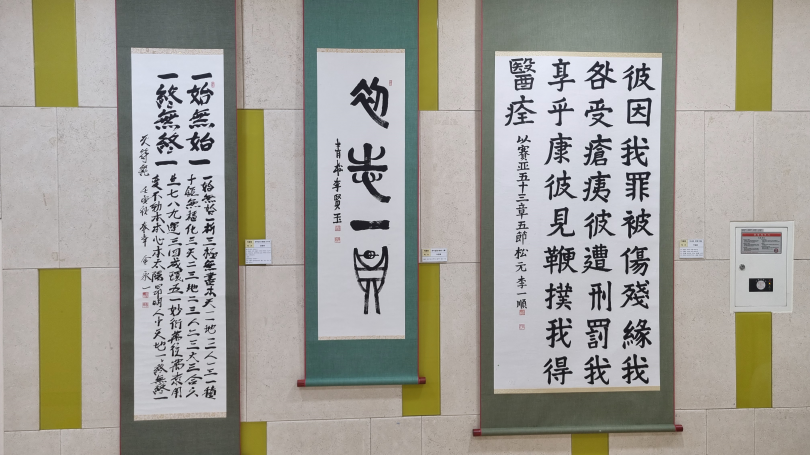 一始無始一
一終無終一
一始無始一析三極無盡本天一一地一二人一三一積
十鉅無匱化三天二三地二三人二三大三合六
生七八九運三四成環五七一妙衍萬往萬來用
變不動本本心本太陽昂明人中天地一一終無終一
天符經
初志一貫
李賢玉
彼因我罪被傷殘緣我
咎受瘡痍彼遭刑罰我
享乎康彼見鞭撲我得
醫痊
以賽亞五十三章五節 松元 李一順